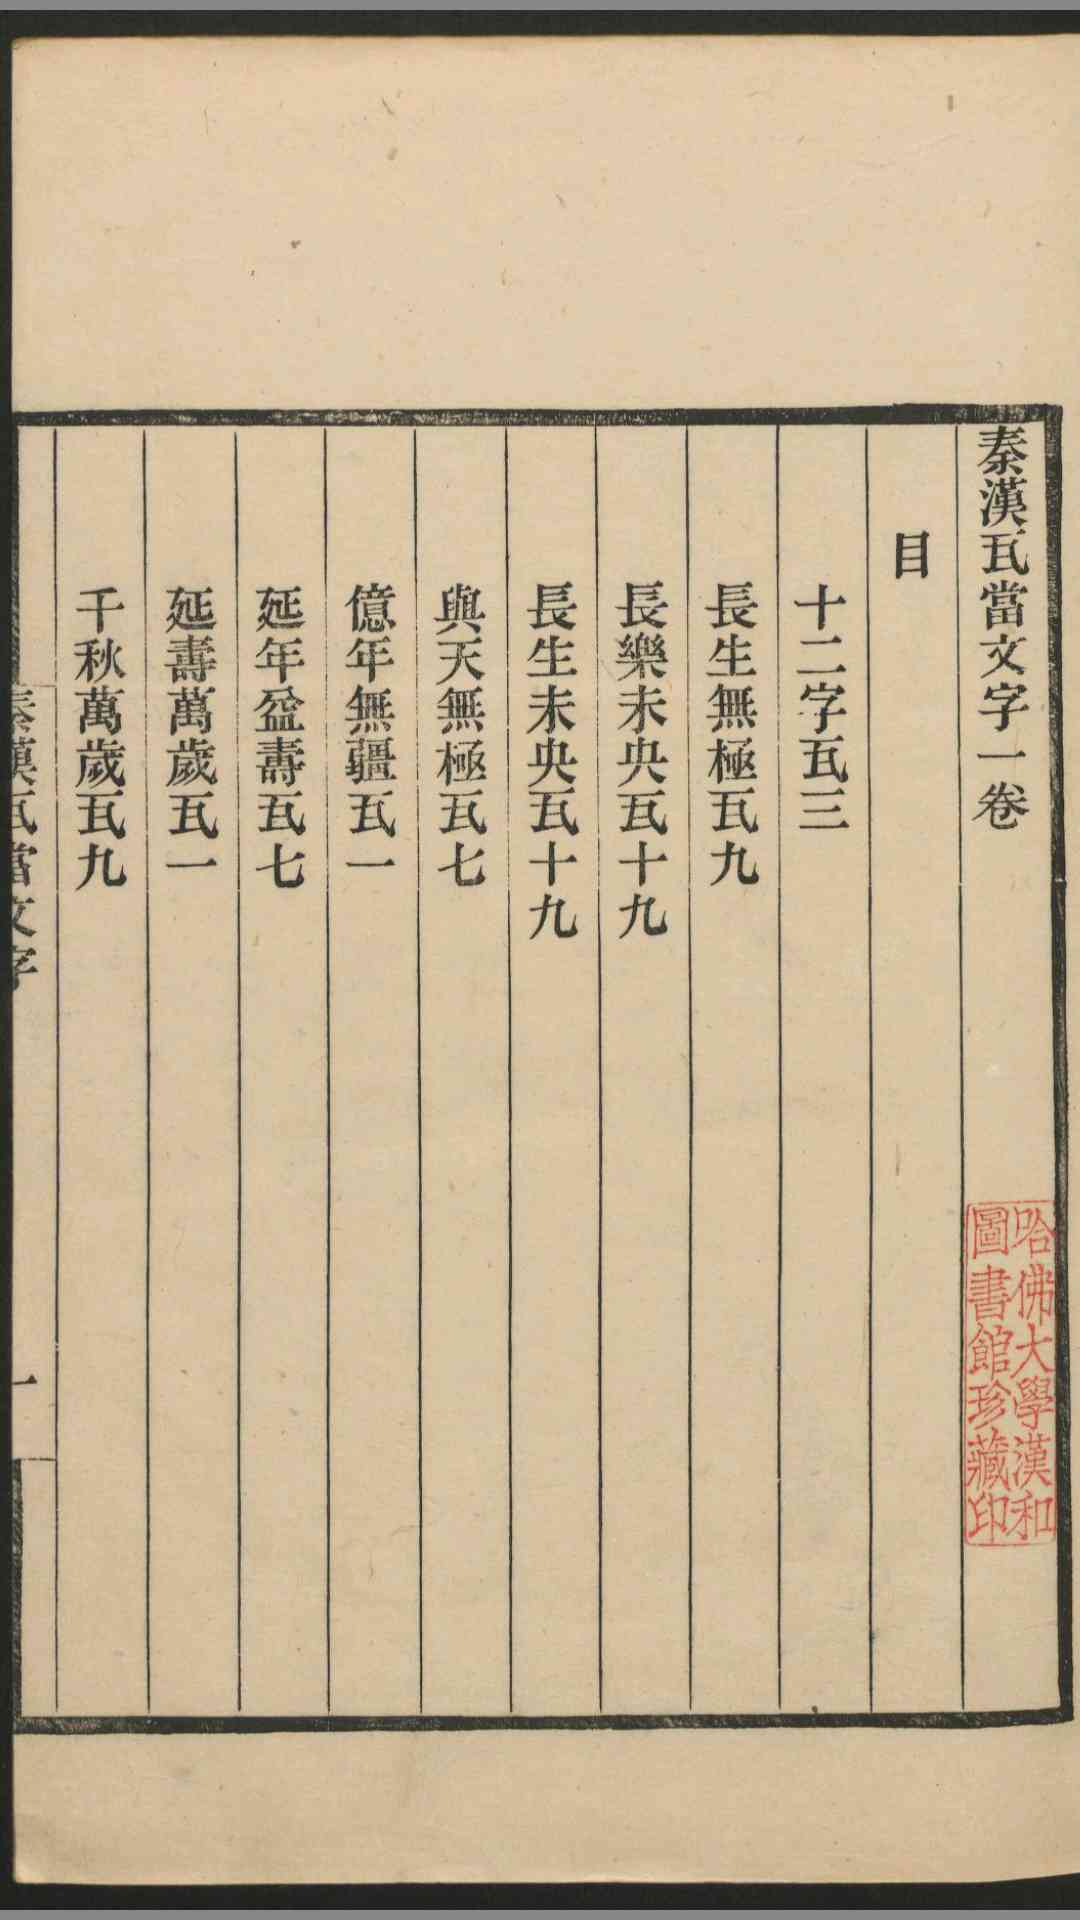 秦漢瓦當文字一卷
目
十二字瓦三
長生無極瓦九
長樂未央瓦十九
長生未央瓦十九
與天無極瓦七
億年無疆瓦一
延年益壽瓦七
延壽萬歲瓦一
千秋萬歲瓦九
秦漢瓦當文字
一
哈佛大學漢和
圖書館珍藏印